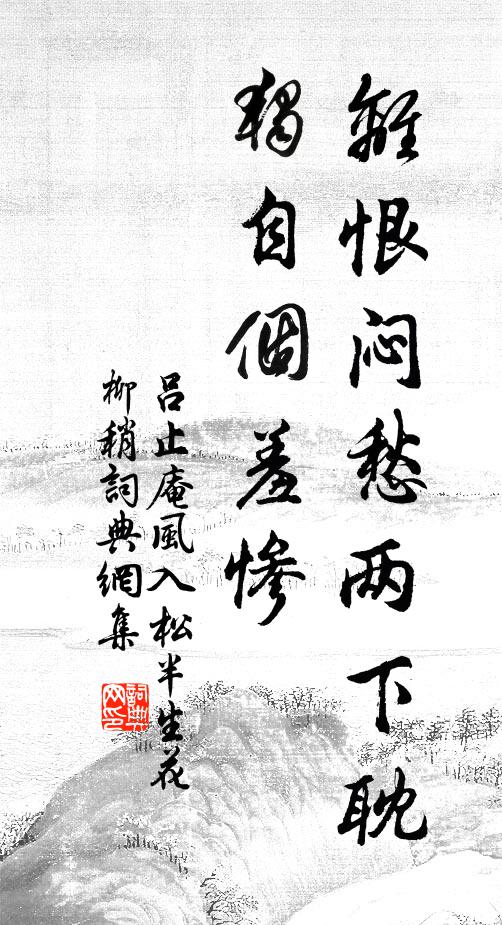 離恨悶愁两下耽
獨自個羞慘
吕止庵風入松半生花
柳稍詞典網集
詞典网印